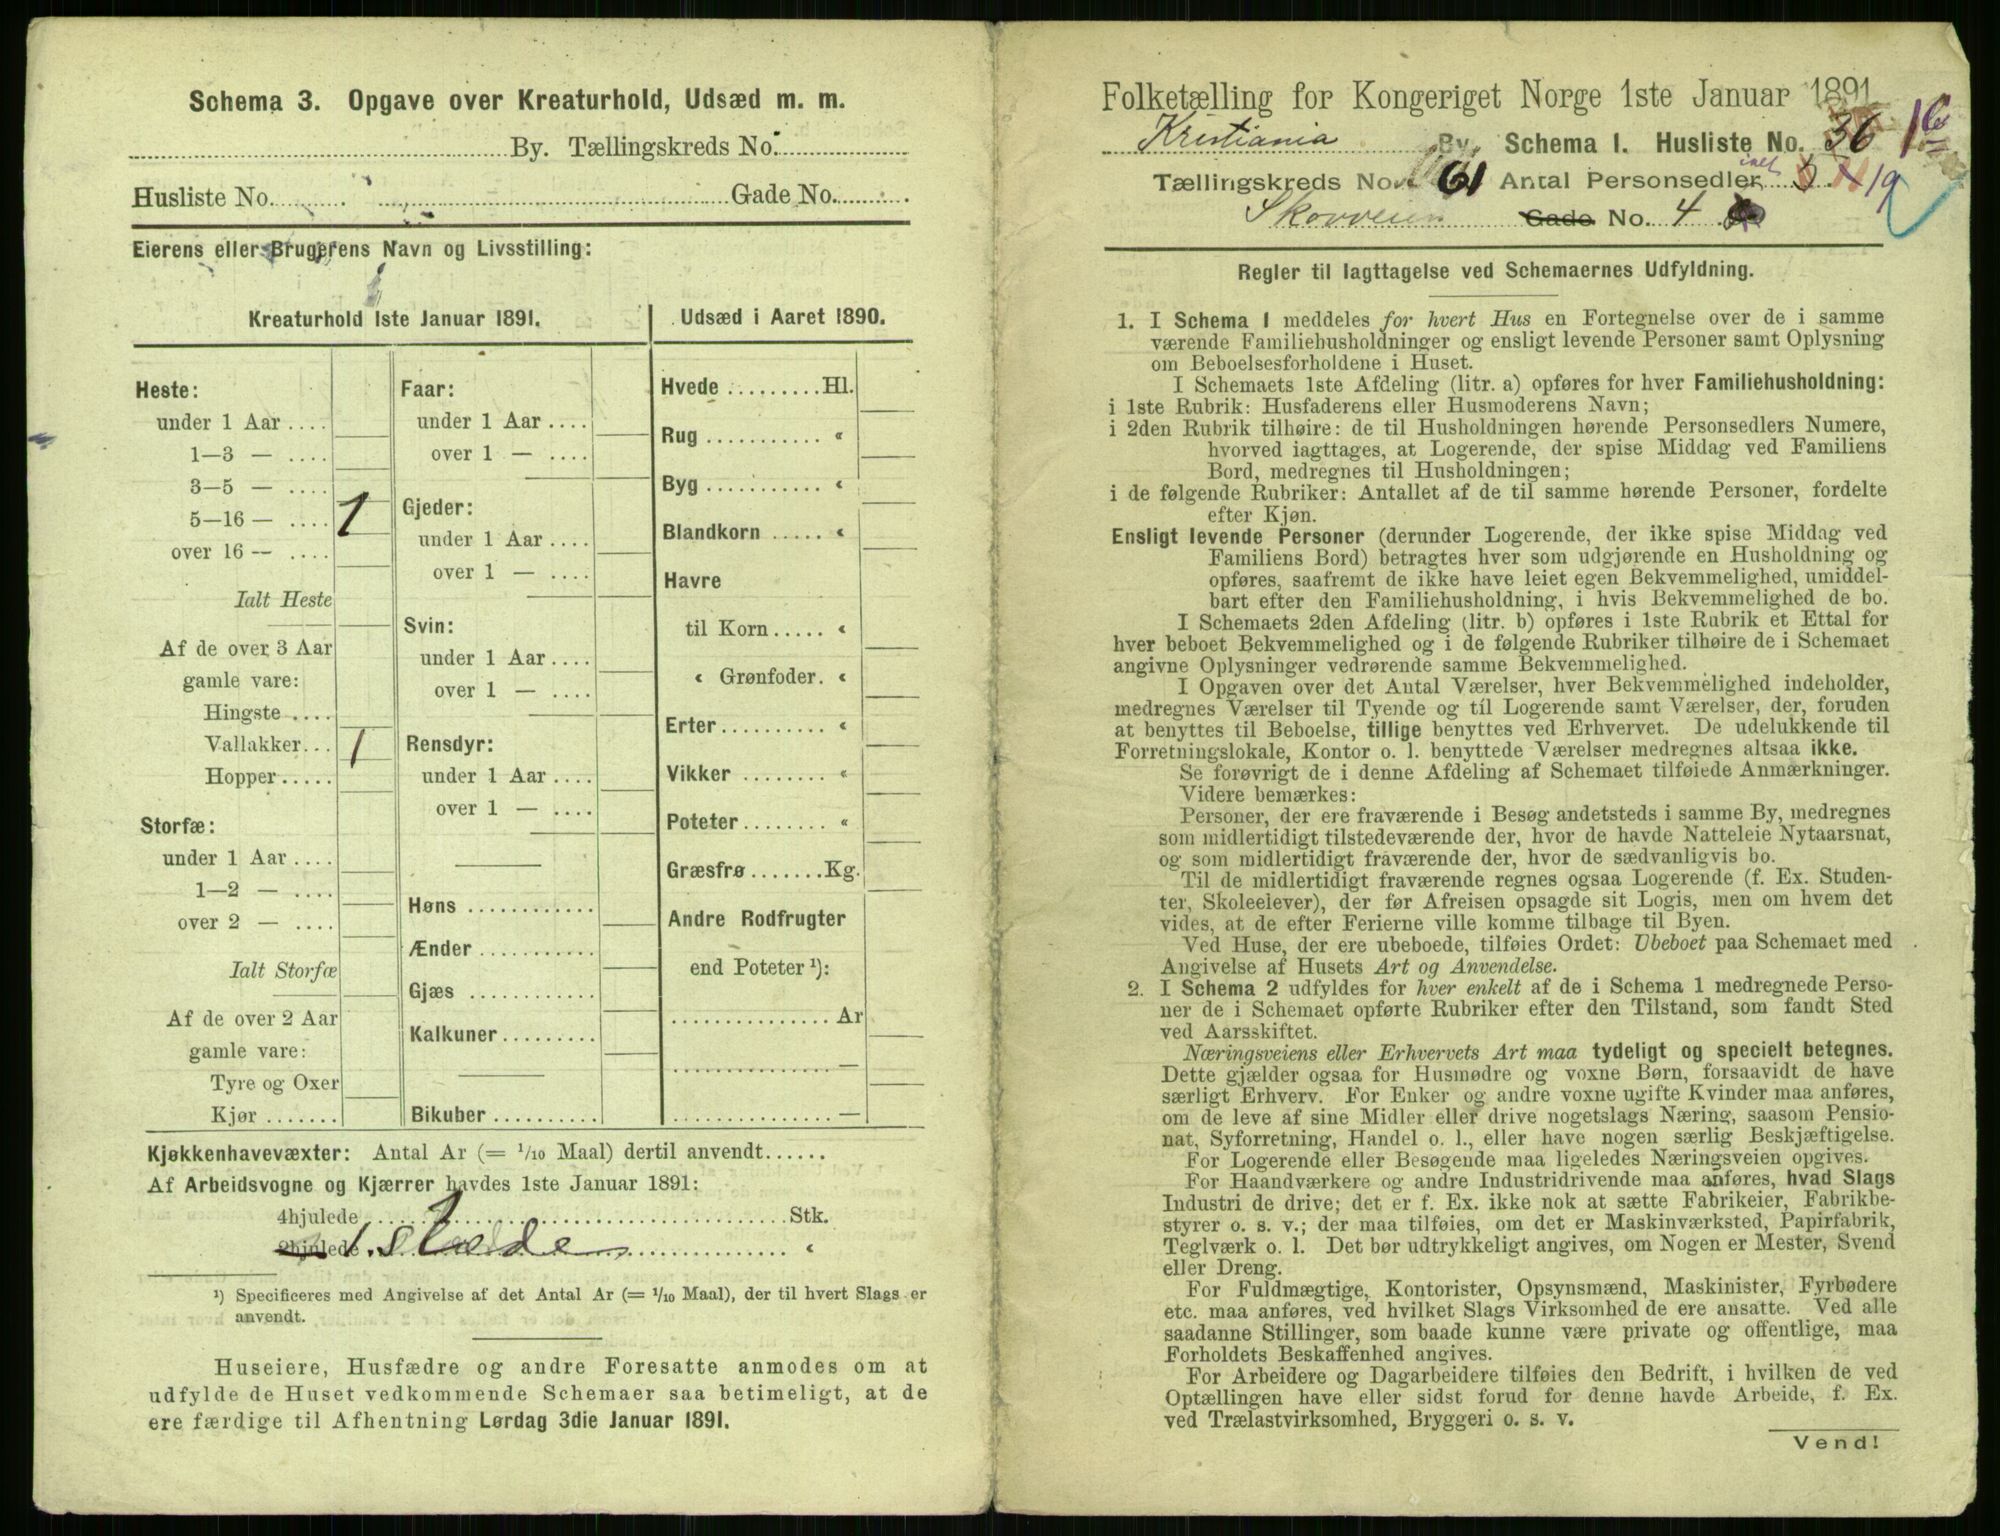 Schema 3. Opgave over Kreaturhold, Udsæd m. m.
By. Tællingskreds No.
Husliste No. Gade No.
Eierens eller Brugerens Navn og Livsstilling:
Kreaturhold 1ste Januar 1891.
Heste:
under 1 Aar ....
1—3 — ....
3—5 — ....
5—16 — .... 1
over 16 — ....
Ialt Heste
Af de over 3 Aar
gamle vare:
Hingste ....
Vallakker... 1
Hopper.....
Storfæ:
under 1 Aar ....
1—2 — ....
over 2 — ....
Ialt Storfæ
Af de over 2 Aar
gamle vare:
Tyre og Oxer
Kjør .......
Faar:
under 1 Aar ....
over 1 — ....
Gjeder:
under 1 Aar ....
over 1 — ....
Svin:
under 1 Aar ....
over 1 — ....
Rensdyr:
under 1 Aar ....
over 1 — ....
Høns ............
Ænder ...........
Gjæs ............
Kalkuner.........
Bikuber ..........
Udsæd i Aaret 1890.
Hvede .........Hl.
Rug ........... «
Byg ........... «
Blandkorn ..... «
Havre
til Korn..... «
« Grønfoder. «
Erter.......... «
Vikker ........ «
Poteter........ «
Græsfrø .......Kg.
Andre Rodfrugter
end Poteter ¹):
............... Ar
............... —
............... —
Kjøkkenhavevæxter: Antal Ar (= 1/10 Maal) dertil anvendt......
Af Arbeidsvogne og Kjærrer havdes 1ste Januar 1891:
4hjulede ..... 1 ..... Stk.
2hjulede 1. slæde ..... «
¹) Specificeres med Angivelse af det Antal Ar (= 1/10 Maal), der til hvert Slags er
anvendt.
Huseiere, Husfædre og andre Foresatte anmodes om at
udfylde de Huset vedkommende Schemaer saa betimeligt, at de
ere færdige til Afhentning Lørdag 3die Januar 1891.
Folketælling for Kongeriget Norge 1ste Januar 1891.
Kristiania By. Schema 1. Husliste No. 36 16
Tællingskreds No. 61 Antal Personsedler ialt 19
Skovveien Gade No. 4
Regler til Iagttagelse ved Schemaernes Udfyldning.
1. I Schema 1 meddeles for hvert Hus en Fortegnelse over de i samme
værende Familiehusholdninger og ensligt levende Personer samt Oplysning
om Beboelsesforholdene i Huset.
I Schemaets 1ste Afdeling (litr. a) opføres for hver Familiehusholdning:
i 1ste Rubrik: Husfaderens eller Husmoderens Navn;
i 2den Rubrik tilhøire: de til Husholdningen hørende Personsedlers Numere,
hvorved iagttages, at Logerende, der spise Middag ved Familiens
Bord, medregnes til Husholdningen;
i de følgende Rubriker: Antallet af de til samme hørende Personer, fordelte
efter Kjøn.
Ensligt levende Personer (derunder Logerende, der ikke spise Middag ved
Familiens Bord) betragtes hver som udgjørende en Husholdning og
opføres, saafremt de ikke have leiet egen Bekvemmelighed, umiddel-
bart efter den Familiehusholdning, i hvis Bekvemmelighed de bo.
I Schemaets 2den Afdeling (litr. b) opføres i 1ste Rubrik et Ettal for
hver beboet Bekvemmelighed og i de følgende Rubriker tilhøire de i Schemaet
angivne Oplysninger vedrørende samme Bekvemmelighed.
I Opgaven over det Antal Værelser, hver Bekvemmelighed indeholder,
medregnes Værelser til Tyende og til Logerende samt Værelser, der, foruden
at benyttes til Beboelse, tillige benyttes ved Erhvervet. De udelukkende til
Forretningslokale, Kontor o. l. benyttede Værelser medregnes altsaa ikke.
Se forøvrigt de i denne Afdeling af Schemaet tilføiede Anmærkninger.
Videre bemærkes:
Personer, der ere fraværende i Besøg andetsteds i samme By, medregnes
som midlertidigt tilstedeværende der, hvor de havde Natteleie Nytaarsnat,
og som midlertidigt fraværende der, hvor de sædvanligvis bo.
Til de midlertidigt fraværende regnes ogsaa Logerende (f. Ex. Studen-
ter, Skoleelever), der før Afreisen opsagde sit Logis, men om hvem det
vides, at de efter Ferierne ville komme tilbage til Byen.
Ved Huse, der ere ubeboede, tilføies Ordet: Ubeboet paa Schemaet med
Angivelse af Husets Art og Anvendelse.
2. I Schema 2 udfyldes for hver enkelt af de i Schema 1 medregnede Perso-
ner de i Schemaet opførte Rubriker efter den Tilstand, som fandt Sted
ved Aarsskiftet.
Næringsveiens eller Erhvervets Art maa tydeligt og specielt betegnes.
Dette gjælder ogsaa for Husmødre og voxne Børn, forsaavidt de have
særligt Erhverv. For Enker og andre voxne ugifte Kvinder maa anføres,
om de leve af sine Midler eller drive nogetslags Næring, saasom Pensio-
nat, Syforretning, Handel o. l., eller have nogen særlig Beskjæftigelse.
For Logerende eller Besøgende maa ligeledes Næringsveien opgives.
For Haandværkere og andre Industridrivende maa anføres, hvad Slags
Industri de drive; det er f. Ex. ikke nok at sætte Fabrikeier, Fabrikbe-
styrer o. s. v.; der maa tilføies, om det er Maskinværksted, Papirfabrik,
Teglværk o. l. Det bør udtrykkeligt angives, om Nogen er Mester, Svend
eller Dreng.
For Fuldmægtige, Kontorister, Opsynsmænd, Maskinister, Fyrbødere
etc. maa anføres, ved hvilket Slags Virksomhed de ere ansatte. Ved alle
saadanne Stillinger, som baade kunne være private og offentlige, maa
Forholdets Beskaffenhed angives.
For Arbeidere og Dagarbeidere tilføies den Bedrift, i hvilken de ved
Optællingen have eller sidst forud for denne havde Arbeide, f. Ex.
ved Trælastvirksomhed, Bryggeri o. s. v.
Vend!